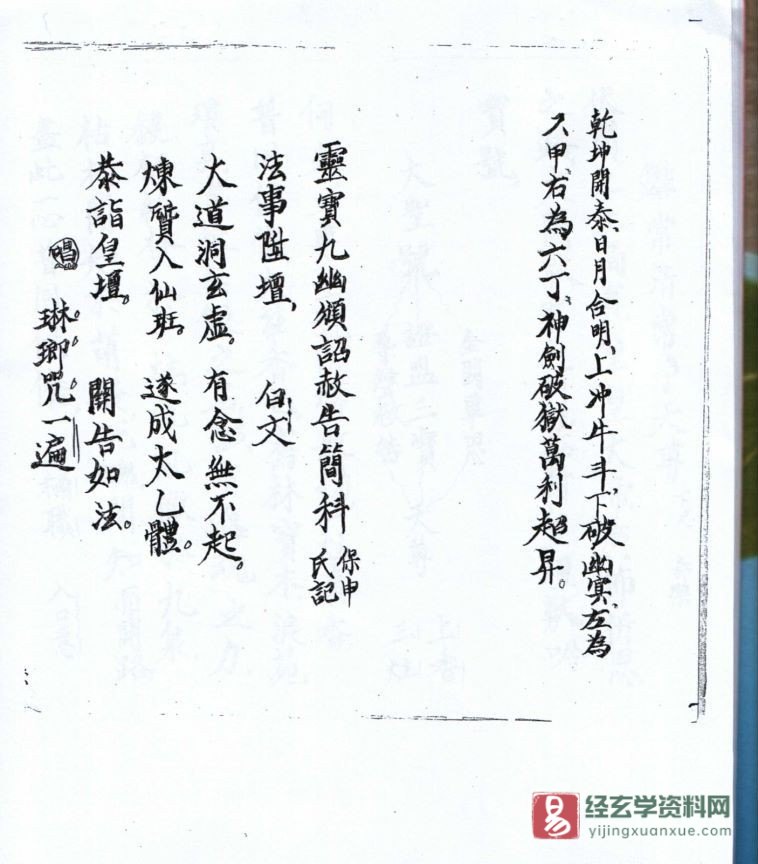 乾坤開泰、日月合明、上冲牛斗、下破幽冥、左為
六甲、右為六丁、神劍破獄萬利超昇。
靈寶九幽頒詔赦告簡科 保申氏記
法事陞壇、 白文
大道洞玄虛。有念無不起。
煉質入仙班。遂成太乙體。
恭詣皇壇。 開告如法。
唱 琳瑯咒一遍
易 经玄学资料网
yijingxuanxue.com